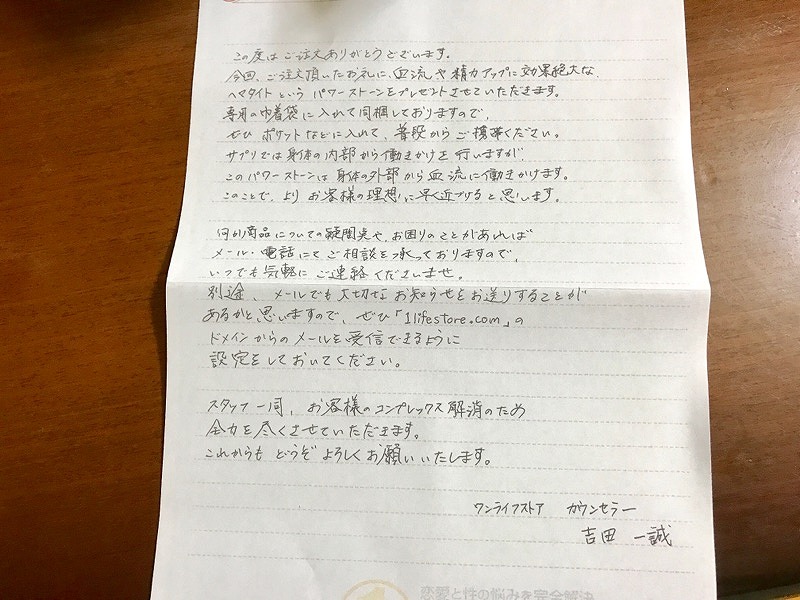 この度はご注文ありがとうございます。
今回、ご注文頂いたお礼に、血流や精力アップに効果絶大な
ヘマタイトという パワーストーンをプレゼントさせていただきます。
専用の巾着袋に入れて同梱しておりますので、
ぜひ ポケットなどに入れて、普段からご携帯ください。
サプリでは身体の内部から働きかけを行いますが、
このパワーストーンは身体の外部から血流に働きかけます。
このことで、より お客様の理想に早く近づけると思います。
何か商品についての疑問点や、お困りのことがあれば
メール・電話にてご相談を承っておりますので、
いつでも気軽にご連絡くださいませ。
別途、メールでも大切なお知らせをお送りすることが
あるかと思いますので、ぜひ「1lifestore.com」の
ドメインからのメールを受信できるように
設定をしておいてください。
スタッフ一同、お客様のコンプレックス解消のため
全力を尽くさせていただきます。
これからも どうぞ よろしくお願いいたします。
ワンライフストア カウンセラー
吉田 一誠
恋愛と性の悩みを完全解決